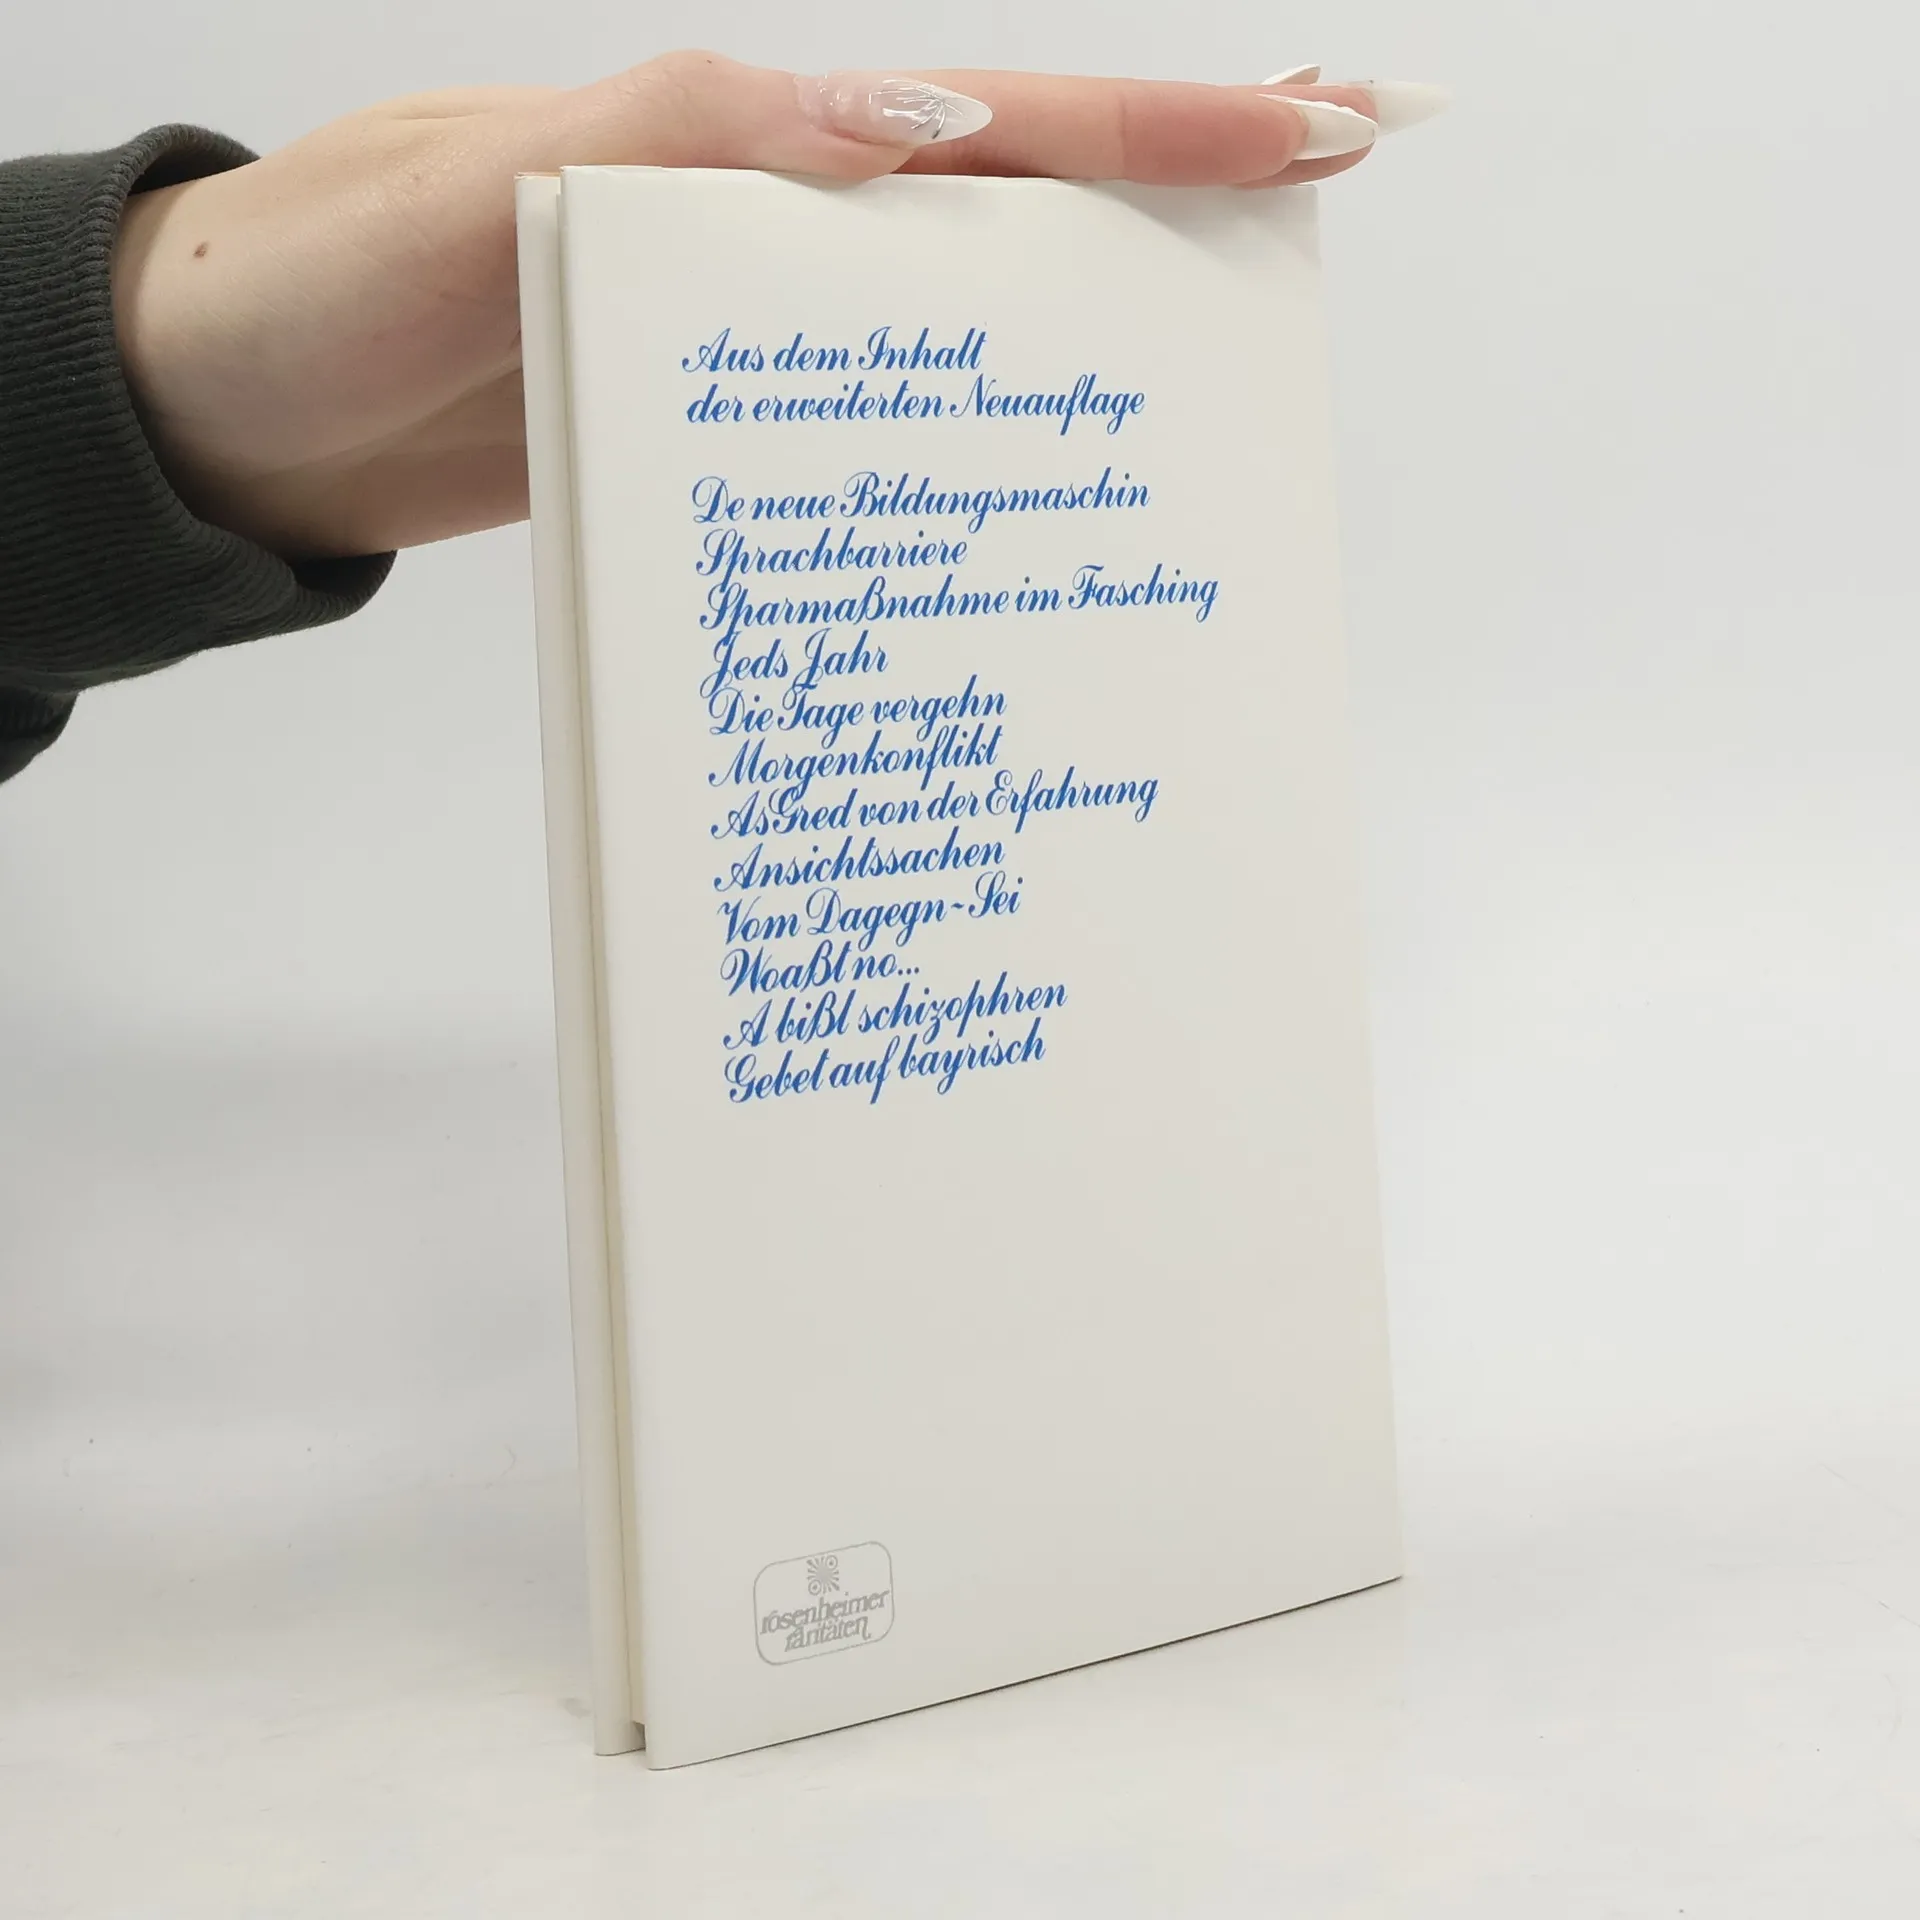 Aus dem Inhalt
der erweiterten Neuauflage
De neue Bildungsmaschin
Sprachbarriere
Sparmaßnahme im Fasching
Jeds Jahr
Die Tage vergehn
Morgenkonflikt
As Gred von der Erfahrung
Ansichtssachen
Vom Dagegn-Sei
Woaßt no...
A bißl schizophren
Gebet auf bayrisch
rosenheimer
raritäten